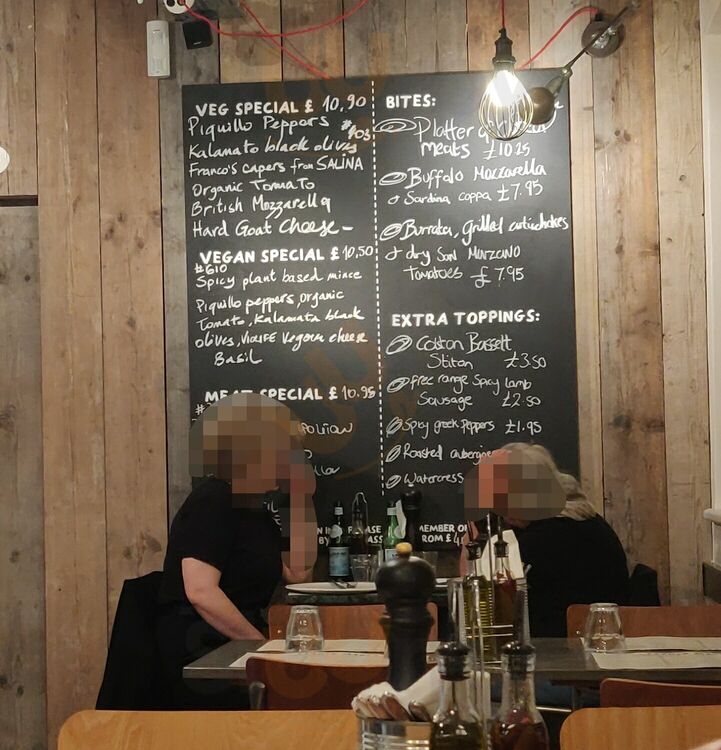 VEG SPECIAL £ 10,90
Piquillo Peppers
Kalamato black olives
Franco's capers from SALINA
Organic Tomato
British Mozzarella
Hard Goat Cheese -
VEGAN SPECIAL £ 10,50
#610
Spicy plant based mince
Piquillo peppers, organic
Tomato, Kalamata black
olives, VIOLIFE Vegan cheese
Basil
MEAT SPECIAL £ 10.95
BITES:
Platter of
meats £10.25
Buffalo Mozzarella
& Sardina coppa £7.95
Burrata, Grilled artichokes
& dry SAN MARZANO
Tomatoes £ 7.95
EXTRA TOPPINGS:
Colston Bassett
Stilton £3.50
free range Spicy lamb
Sausage £2.50
Spicy greek peppers £1.95
Roasted aubergine
Watercress
MEMBER OF
ROM £4